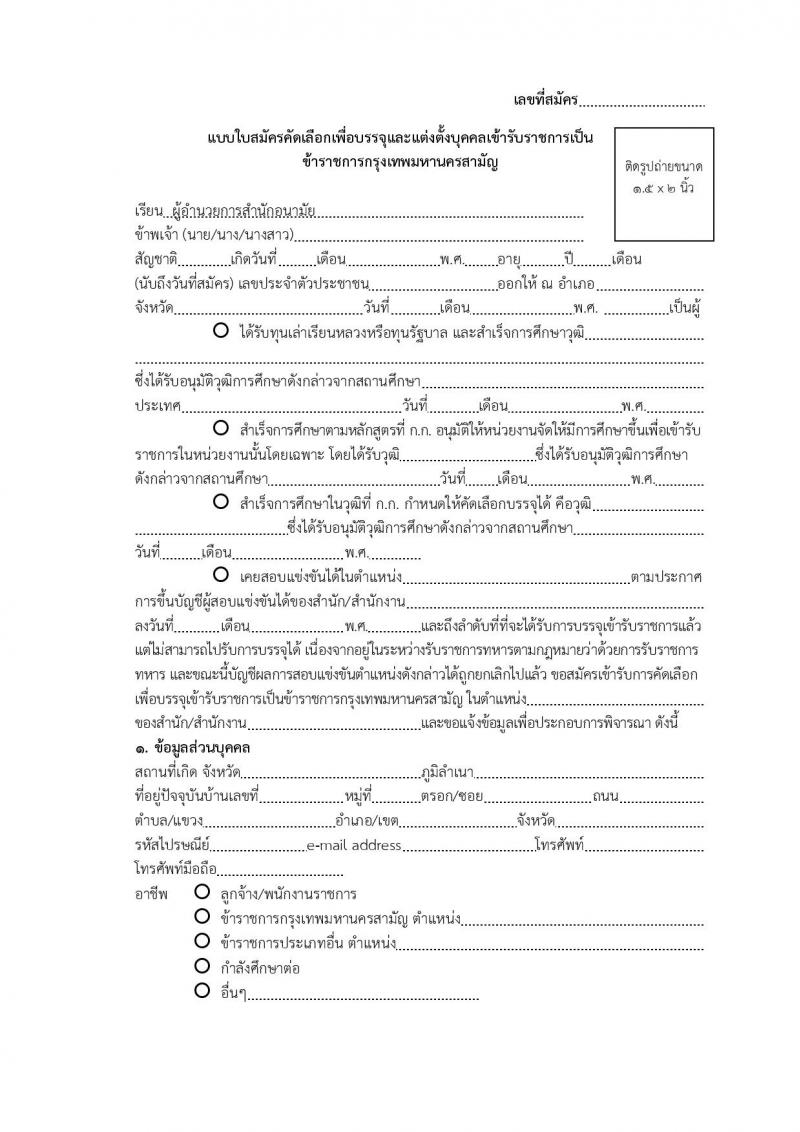 เลขที่สมัคร
แบบใบสมัครคัดเลือกเพื่อบรรจุและแต่งตั้งบุคคลเข้ารับราชการเป็น
ข้าราชการกรุงเทพมหานครสามัญ
ติดรูปถ่ายขนาด
๑.๕ x ๒ นิ้ว
เรียน ผู้อำนวยการสำนักอนามัย
ข้าพเจ้า (นาย/นาง/นางสาว)
สัญชาติ เกิดวันที่ เดือน พ.ศ. อายุ ปี เดือน
(นับถึงวันที่สมัคร) เลขประจำตัวประชาชน ออกให้ ณ อำเภอ
จังหวัด วันที่ เดือน พ.ศ. เป็นผู้
ได้รับทุนเล่าเรียนหลวงหรือทุนรัฐบาล และสำเร็จการศึกษาวุฒิ
ซึ่งได้รับอนุมัติวุฒิการศึกษาดังกล่าวจากสถานศึกษา
ประเทศ วันที่ เดือน พ.ศ.
สำเร็จการศึกษาตามหลักสูตรที่ ก.ก. อนุมัติให้หน่วยงานจัดให้มีการศึกษาขึ้นเพื่อเข้ารับ
ราชการในหน่วยงานนั้นโดยเฉพาะ โดยได้รับวุฒิ ซึ่งได้รับอนุมัติวุฒิการศึกษา
ดังกล่าวจากสถานศึกษา วันที่ เดือน พ.ศ.
สำเร็จการศึกษาในวุฒิที่ ก.ก. กำหนดให้คัดเลือกบรรจุได้ คือวุฒิ
ซึ่งได้รับอนุมัติวุฒิการศึกษาดังกล่าวจากสถานศึกษา
วันที่ เดือน พ.ศ.
เคยสอบแข่งขันได้ในตำแหน่ง ตามประกาศ
การขึ้นบัญชีผู้สอบแข่งขันได้ของสำนัก/สำนักงาน
ลงวันที่ เดือน พ.ศ. และถึงลำดับที่ที่จะได้รับการบรรจุเข้ารับราชการแล้ว
แต่ไม่สามารถไปรับการบรรจุได้ เนื่องจากอยู่ในระหว่างรับราชการทหารตามกฎหมายว่าด้วยการรับราชการ
ทหาร และขณะนี้บัญชีผลการสอบแข่งขันตำแหน่งดังกล่าวได้ถูกยกเลิกไปแล้ว ขอสมัครเข้ารับการคัดเลือก
เพื่อบรรจุเข้ารับราชการเป็นข้าราชการกรุงเทพมหานครสามัญ ในตำแหน่ง
ของสำนัก/สำนักงาน และขอแจ้งข้อมูลเพื่อประกอบการพิจารณา ดังนี้
๑. ข้อมูลส่วนบุคคล
สถานที่เกิด จังหวัด ภูมิลำเนา
ที่อยู่ปัจจุบันบ้านเลขที่ หมู่ที่ ตรอก/ซอย ถนน
ตำบล/แขวง อำเภอ/เขต จังหวัด
รหัสไปรษณีย์ e-mail address โทรศัพท์
โทรศัพท์มือถือ
อาชีพ ลูกจ้าง/พนักงานราชการ
ข้าราชการกรุงเทพมหานครสามัญ ตำแหน่ง
ข้าราชการประเภทอื่น ตำแหน่ง
กำลังศึกษาต่อ
อื่นๆ